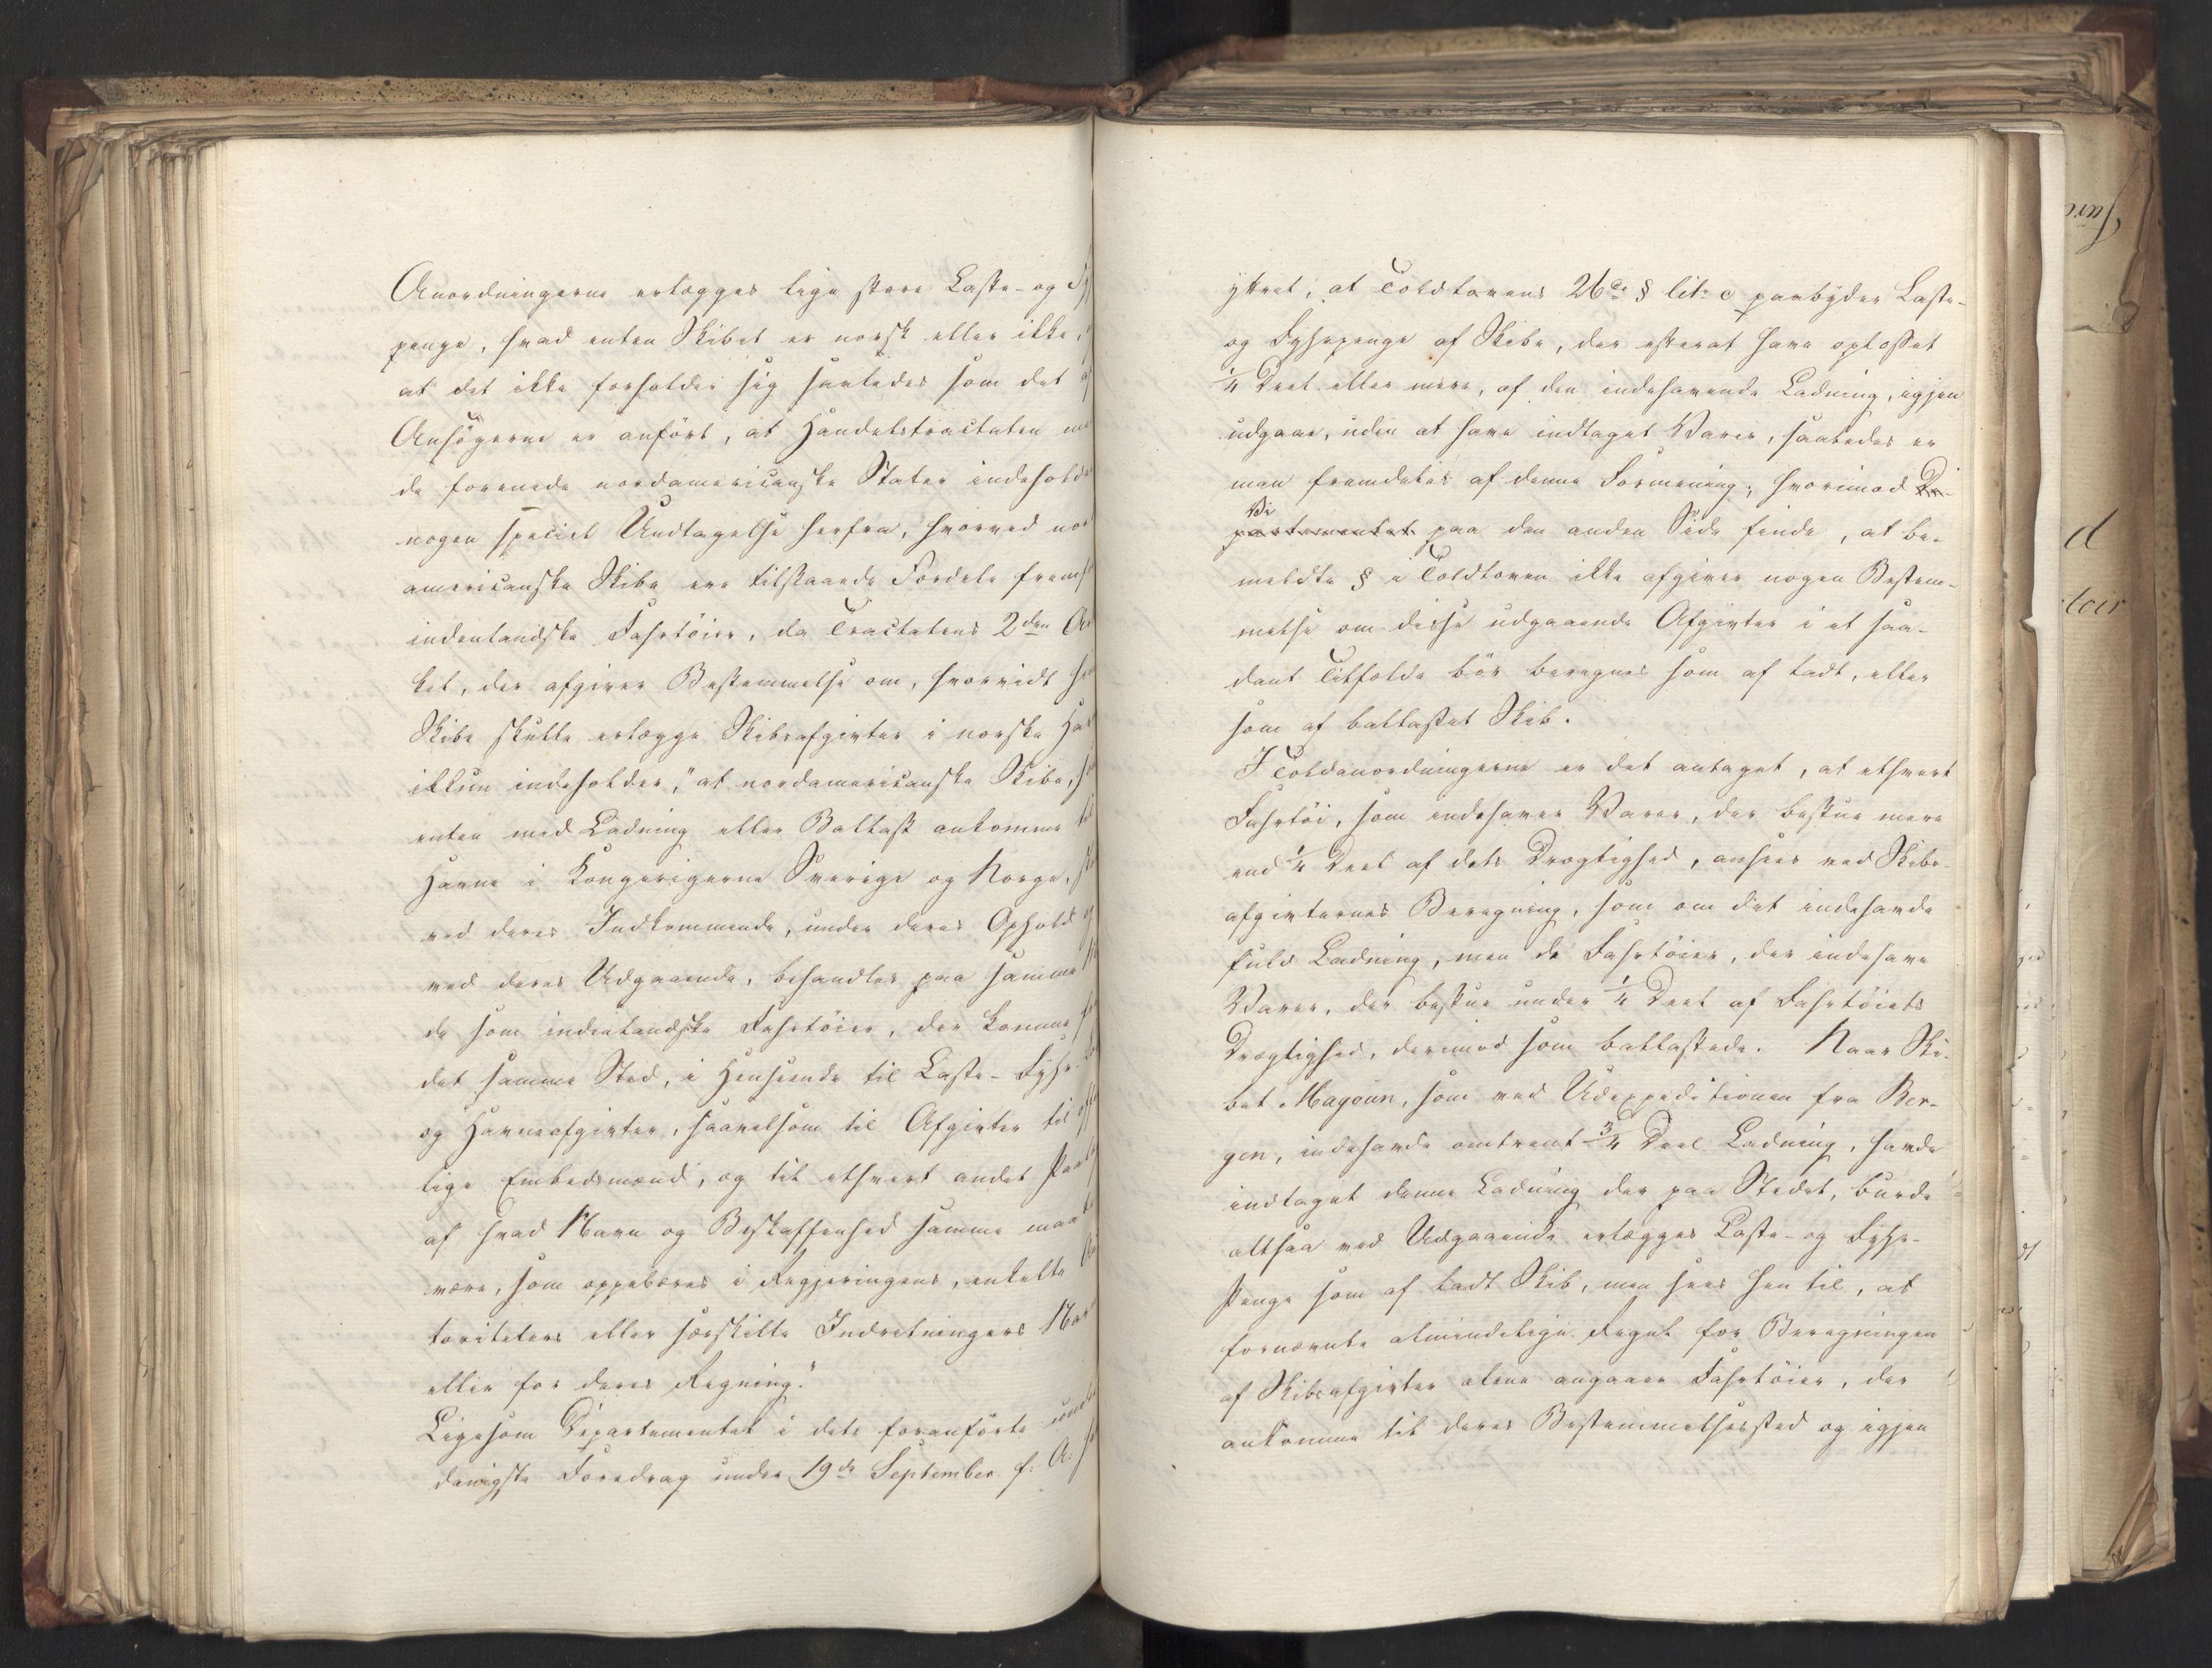 Anordningerne erlægges lige store Laste- og Fy
penge, hvad enten Skibet er norsk eller ikke,
at det ikke forholder sig saaledes som det af
Ansøgerne er anført, at Handelstractaten me
de forenede nordamericanske Stater indehold
nogen speciel Undtagelse herfra, hvorved nor
americanske Skibe ere tilstaaede Fordele fremf
indenlandske Fahrtöier, da Tractatens 2den Ar
kel, der afgiver Bestemmelse om, hvorvidt
Skibe skulle erlægge Skibsafgivter i norske Hav
ikkun indeholder, "at nordamericanske Skibe,
enten med Ladning eller Ballast ankomme til
Havne i Kongerigerne Sverige og Norge, sk
ved deres Indkommende, under deres Ophold og
ved deres Udgaaende, behandles paa samme
de som indenlandske Fahrtöier, der komme fra
det samme Sted, i Henseende til Laste- Fyhr-
og Havneafgivter, saavelsom til Afgivter til off
lige Embedsmænd, og til ethvert andet
af hvad Navn og Beskaffenhed samme maatte
være, som oppebæres i Regjeringens, enkelte Au
toriteters eller særskilte Indretningers Nav
eller for deres Regning."
Ligesom Departementet i dets foranførte under
danigste Foredrag under 19de September f: A:
yttret, at Toldlovens 26de § lit. c paabyder Laste-
og Fyhrpenge af Skibe, der efterat have oplosset
1/4 Deel eller mere, af den indehavende Ladning, igjen
udgaae, uden at have indtaget Varer, saaledes er
man fremdeles af denne Formening; hvorimod De-
Vi
partementet paa den anden Side finde, at be-
meldte § i Toldloven ikke afgiver nogen Bestem-
melse om disse udgaaende Afgivter i et saa-
dant Tilfælde bör beregnes som af ladt, eller
som af ballastet Skib.
I Toldanordningerne er det antaget, at ethvert
Fahrtöi, som indehaver Varer, der bestaae mere
end 1/4 Deel af dets Drægtighed, ansees ved Skibs-
afgivternes Beregning, som om det indehavde
fuld Ladning, men de Fahrtöier, der indehave
Varer, der bestaae under 1/4 Deel af Fahrtöiets
Drægtighed, derimod som ballastede. Naar Ski-
bet Mayoun, som ved Udexpeditionen fra Ber-
gen, indehavde omtrent 3/4 Deel Ladning, havde
indtaget denne Ladning der paa Stedet, burde
altsaa ved Udgaaende erlægges Laste- og Fyhr-
Penge som af ladt Skib, men sees hen til, at
fornævnte almindelige Regel for Beregningen
af Skibsafgivter alene angaaer Fahrtöier, der
ankomme til deres Bestemmelsessted og igjen